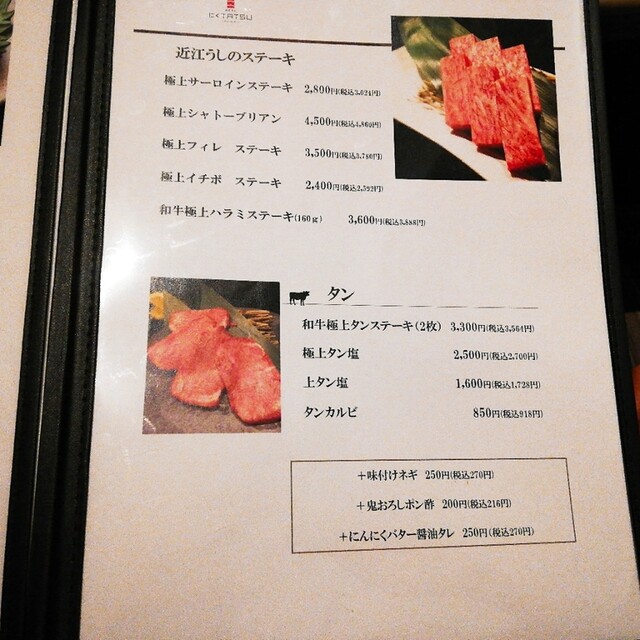 近江うしのステーキ
極上サーロインステーキ 2,800円(税込3,024円)
極上シャトーブリアン 4,500円(税込4,860円)
極上フィレ ステーキ 3,500円(税込3,780円)
極上イチボ ステーキ 2,400円(税込2,592円)
和牛極上ハラミステーキ(160g) 3,600円(税込3,888円)
タン
和牛極上タンステーキ(2枚) 3,300円(税込3,564円)
極上タン塩 2,500円(税込2,700円)
上タン塩 1,600円(税込1,728円)
タンカルビ 850円(税込918円)
+味付けネギ 250円(税込270円)
+鬼おろしポン酢 200円(税込216円)
+にんにくバター醤油タレ 250円(税込270円)